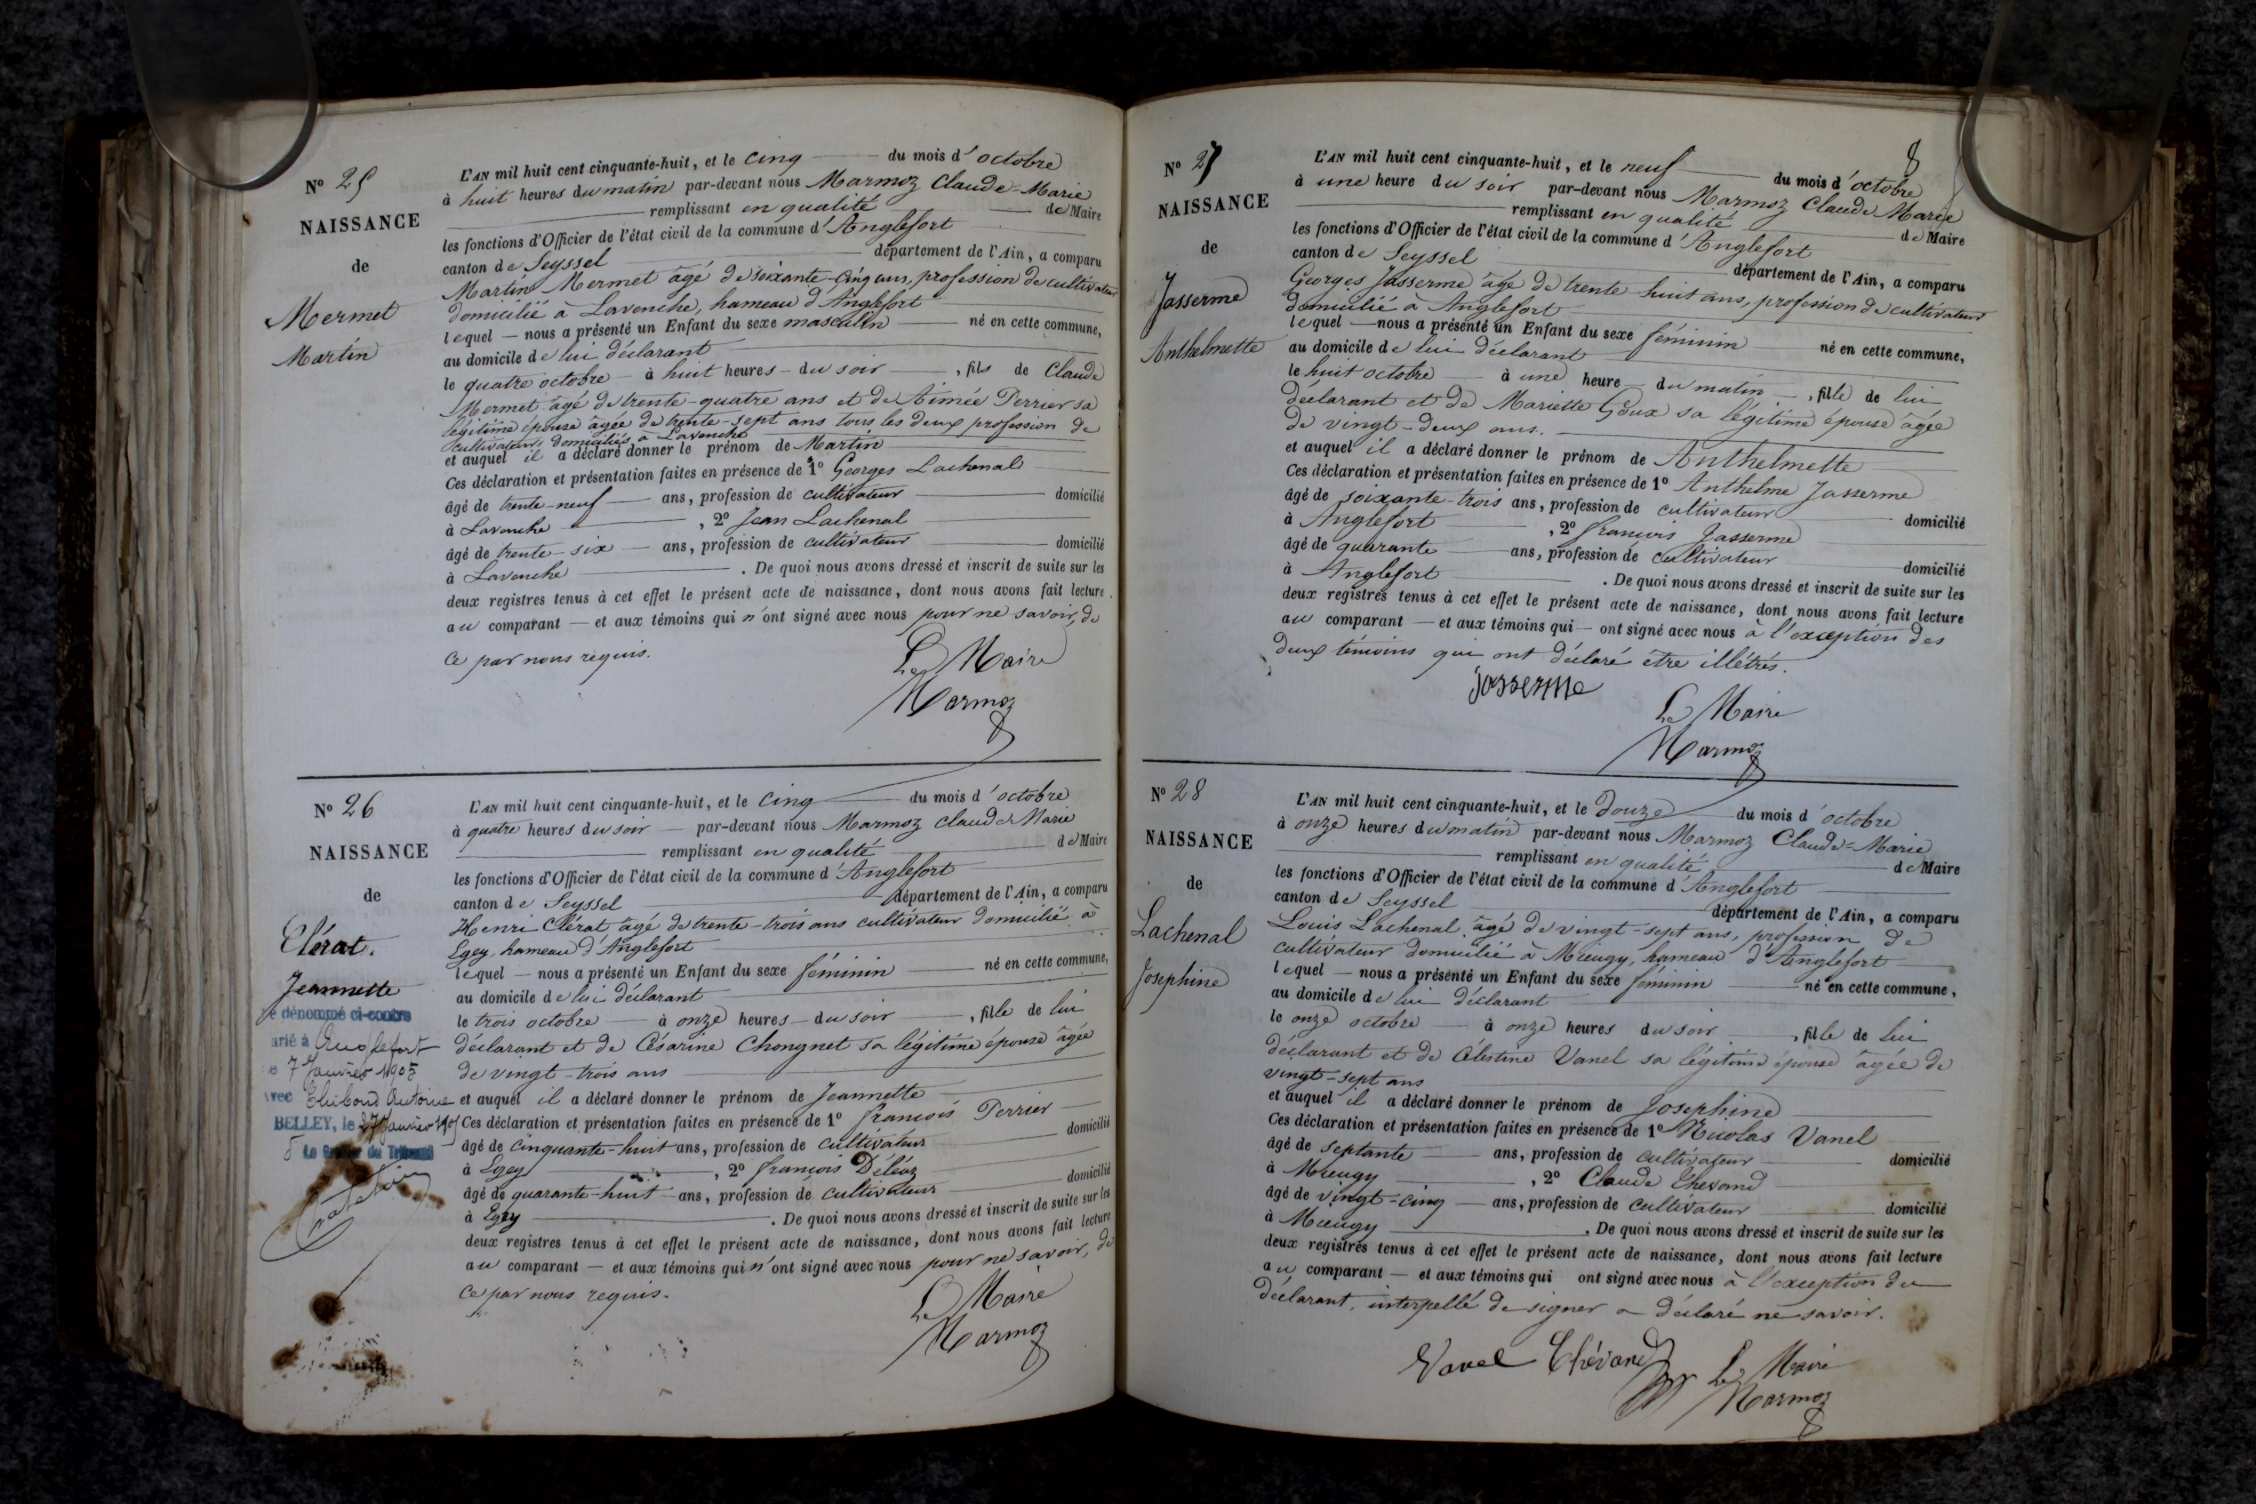 N° 25
NAISSANCE
de
Mermet
Martin
L'AN mil huit cent cinquante-huit, et le cinq du mois d'octobre
à huit heures du matin par-devant nous Marmoz Claude-Marie
remplissant en qualité de Maire
les fonctions d'Officier de l'état civil de la commune d'Anglefort
canton de Seyssel département de l'Ain, a comparu
Martin Mermet âgé de soixante-cinq ans, profession de cultivateur
domicilié à Lavenche, hameau d'Anglefort
lequel — nous a présenté un Enfant du sexe masculin né en cette commune,
au domicile de lui déclarant
le quatre octobre à huit heures du soir, fils de Claude
Mermet âgé de trente-quatre ans et de Aimée Perrier sa
légitime épouse âgée de trente-sept ans tous les deux profession de
cultivateurs domiciliés à Lavenche
et auquel il a déclaré donner le prénom de Martin
Ces déclaration et présentation faites en présence de 1° Georges Lachenal
âgé de trente-neuf ans, profession de cultivateur domicilié
à Lavenche, 2° Jean Lachenal
âgé de trente-six ans, profession de cultivateur domicilié
à Lavenche. De quoi nous avons dressé et inscrit de suite sur les
deux registres tenus à cet effet le présent acte de naissance, dont nous avons fait lecture
au comparant — et aux témoins qui n'ont signé avec nous pour ne savoir, de
ce par nous requis.
Le Maire
Marmoz
N° 26
NAISSANCE
de
Clérat.
Jeannette
e dénommé ci-contre
arié à Anglefort
7 Janvier 1905
vec Thiboud Antoine
BELLEY, le 27 Janvier 1905
Le Greffier du Tribunal
L'AN mil huit cent cinquante-huit, et le cinq du mois d'octobre
à quatre heures du soir — par-devant nous Marmoz Claude Marie
remplissant en qualité de Maire
les fonctions d'Officier de l'état civil de la commune d'Anglefort
canton de Seyssel département de l'Ain, a comparu
Henri Clérat âgé de trente-trois ans cultivateur domicilié à
Egey, hameau d'Anglefort
lequel — nous a présenté un Enfant du sexe féminin né en cette commune,
au domicile de lui déclarant
le trois octobre à onze heures du soir, fille de lui
déclarant et de Césarine Chongnet sa légitime épouse âgée
de vingt-trois ans
et auquel il a déclaré donner le prénom de Jeannette
Ces déclaration et présentation faites en présence de 1° françois Perrier
âgé de cinquante-huit ans, profession de cultivateur domicilié
à Egey, 2° françois Déléaz
âgé de quarante-huit ans, profession de cultivateur domicilié
à Egey. De quoi nous avons dressé et inscrit de suite sur les
deux registres tenus à cet effet le présent acte de naissance, dont nous avons fait lecture
au comparant — et aux témoins qui n'ont signé avec nous pour ne savoir, de
ce par nous requis.
Le Maire
Marmoz
8
N° 27
NAISSANCE
de
Jasserme
Anthelmette
L'AN mil huit cent cinquante-huit, et le neuf du mois d'octobre
à une heure du soir par-devant nous Marmoz Claude Marie
remplissant en qualité de Maire
les fonctions d'Officier de l'état civil de la commune d'Anglefort
canton de Seyssel département de l'Ain, a comparu
Georges Jasserme âgé de trente huit ans, profession de cultivateur
domicilié à Anglefort
lequel — nous a présenté un Enfant du sexe féminin né en cette commune,
au domicile de lui déclarant
le huit octobre à une heure du matin, fille de lui
déclarant et de Mariette Goux sa légitime épouse âgée
de vingt-deux ans.
et auquel il a déclaré donner le prénom de Anthelmette
Ces déclaration et présentation faites en présence de 1° Anthelme Jasserme
âgé de soixante-trois ans, profession de cultivateur domicilié
à Anglefort, 2° françois Jasserme
âgé de quarante ans, profession de cultivateur domicilié
à Anglefort. De quoi nous avons dressé et inscrit de suite sur les
deux registres tenus à cet effet le présent acte de naissance, dont nous avons fait lecture
au comparant — et aux témoins qui — ont signé avec nous à l'exception des
deux témoins qui ont déclaré être illétrés.
jasserme
Le Maire
Marmoz
N° 28
NAISSANCE
de
Lachenal
Josephine
L'AN mil huit cent cinquante-huit, et le douze du mois d'octobre
à onze heures du matin par-devant nous Marmoz Claude-Marie
remplissant en qualité de Maire
les fonctions d'Officier de l'état civil de la commune d'Anglefort
canton de Seyssel département de l'Ain, a comparu
Louis Lachenal âgé de vingt-sept ans, profession de
cultivateur domicilié à Mieugy, hameau d'Anglefort
lequel — nous a présenté un Enfant du sexe féminin né en cette commune,
au domicile de lui déclarant
le onze octobre à onze heures du soir, fille de lui
déclarant et de Célestine Vanel sa légitime épouse âgée de
vingt-sept ans
et auquel il a déclaré donner le prénom de Josephine
Ces déclaration et présentation faites en présence de 1° Nicolas Vanel
âgé de septante ans, profession de cultivateur domicilié
à Mieugy, 2° Claude Thevand
âgé de vingt-cinq ans, profession de cultivateur domicilié
à Mieugy. De quoi nous avons dressé et inscrit de suite sur les
deux registres tenus à cet effet le présent acte de naissance, dont nous avons fait lecture
au comparant — et aux témoins qui ont signé avec nous à l'exception du
déclarant, interpellé de signer a déclaré ne savoir.
Vanel Thévand Le Maire
Marmoz